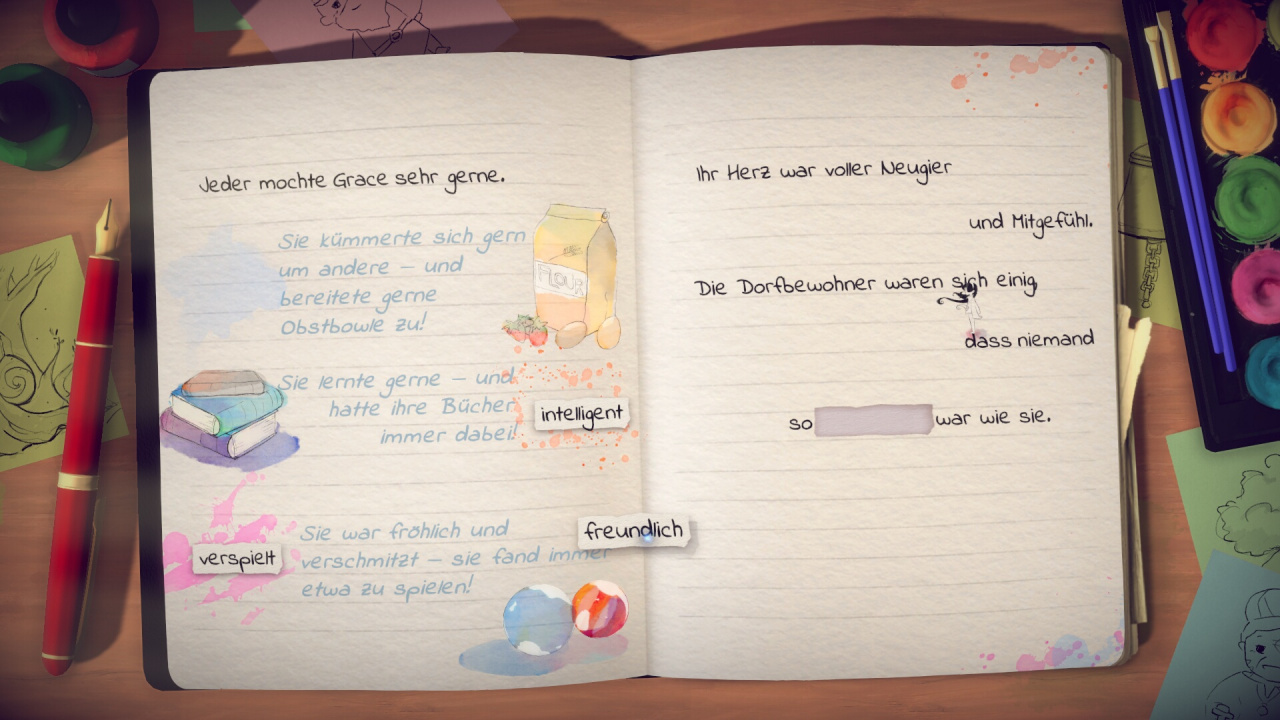 Jeder mochte Grace sehr gerne.
Sie kümmerte sich gern
um andere – und
bereitete gerne
Obstbowle zu!
FLOUR
Sie lernte gerne – und
hatte ihre Bücher
immer dabei!
intelligent
Sie war fröhlich und
verschmitzt – sie fand immer
etwa zu spielen!
verspielt
freundlich
Ihr Herz war voller Neugier
und Mitgefühl.
Die Dorfbewohner waren sich einig,
dass niemand
so war wie sie.